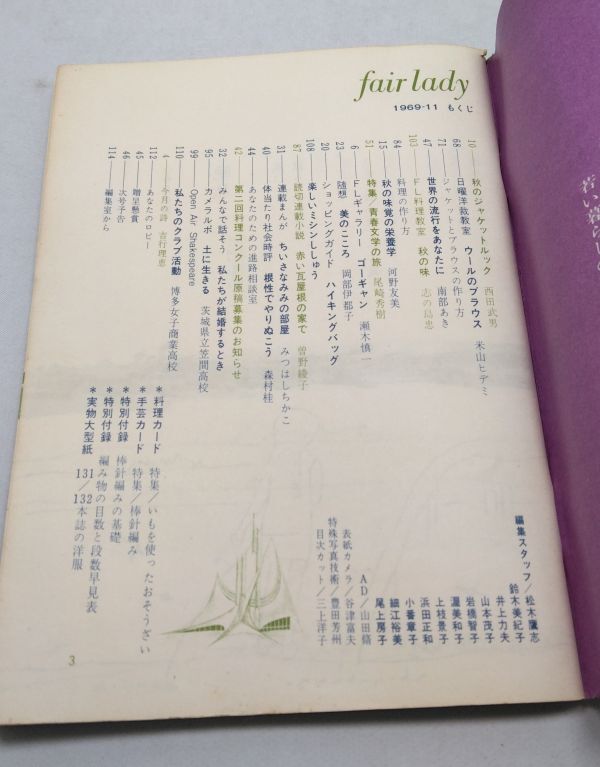 fair lady
1969-11 もくじ
10 秋のジャケットルック 西田武男
68 日曜洋裁教室 ウールのブラウス 米山ヒデミ
71 ジャケットとブラウスの作り方
47 世界の流行をあなたに 南部あき
103 FL料理教室 秋の味 志の島忠
84 料理の作り方
15 秋の味覚の栄養学 河野友美
51 特集/青春文学の旅 尾崎秀樹
6 FLギャラリー ゴーギャン 瀬木慎一
23 随想 美のこころ 岡部伊都子
20 ショッピングガイド ハイキングバッグ
108 楽しいミシンししゅう
87 読切連載小説 赤い瓦屋根の家で 曽野綾子
31 連載まんが ちいさなみみの部屋 みつはしちかこ
40 体当たり社会時評 根性でやりぬこう 森村桂
44 あなたのための進路相談室
42 第二回料理コンクール原稿募集のお知らせ
32 みんなで話そう 私たちが結婚するとき
95 カメラルポ 土に生きる 茨城県立笠間高校
99 Open Air Shakespeare
110 私たちのクラブ活動 博多女子商業高校
4 今月の詩 吉行理恵
112 あなたのロビー
45 贈呈懸賞
46 次号予告
114 編集室から
*料理カード 特集/いもを使ったおそうざい
*手芸カード 特集/棒針編み
*特別付録 棒針編みの基礎
*特別付録 編み物の目数と段数早見表
*実物大型紙 131/132本誌の洋服
編集スタッフ/松木鷹志
鈴木美紀子
井上力夫
山本茂子
岩橋智子
上枝景子
渥美和子
浜田正和
小番章子
細江裕美
尾上房子
AD/山田脩
表紙カメラ/谷津富夫
特殊写真技術/豊田芳州
目次カット/三上洋子
3